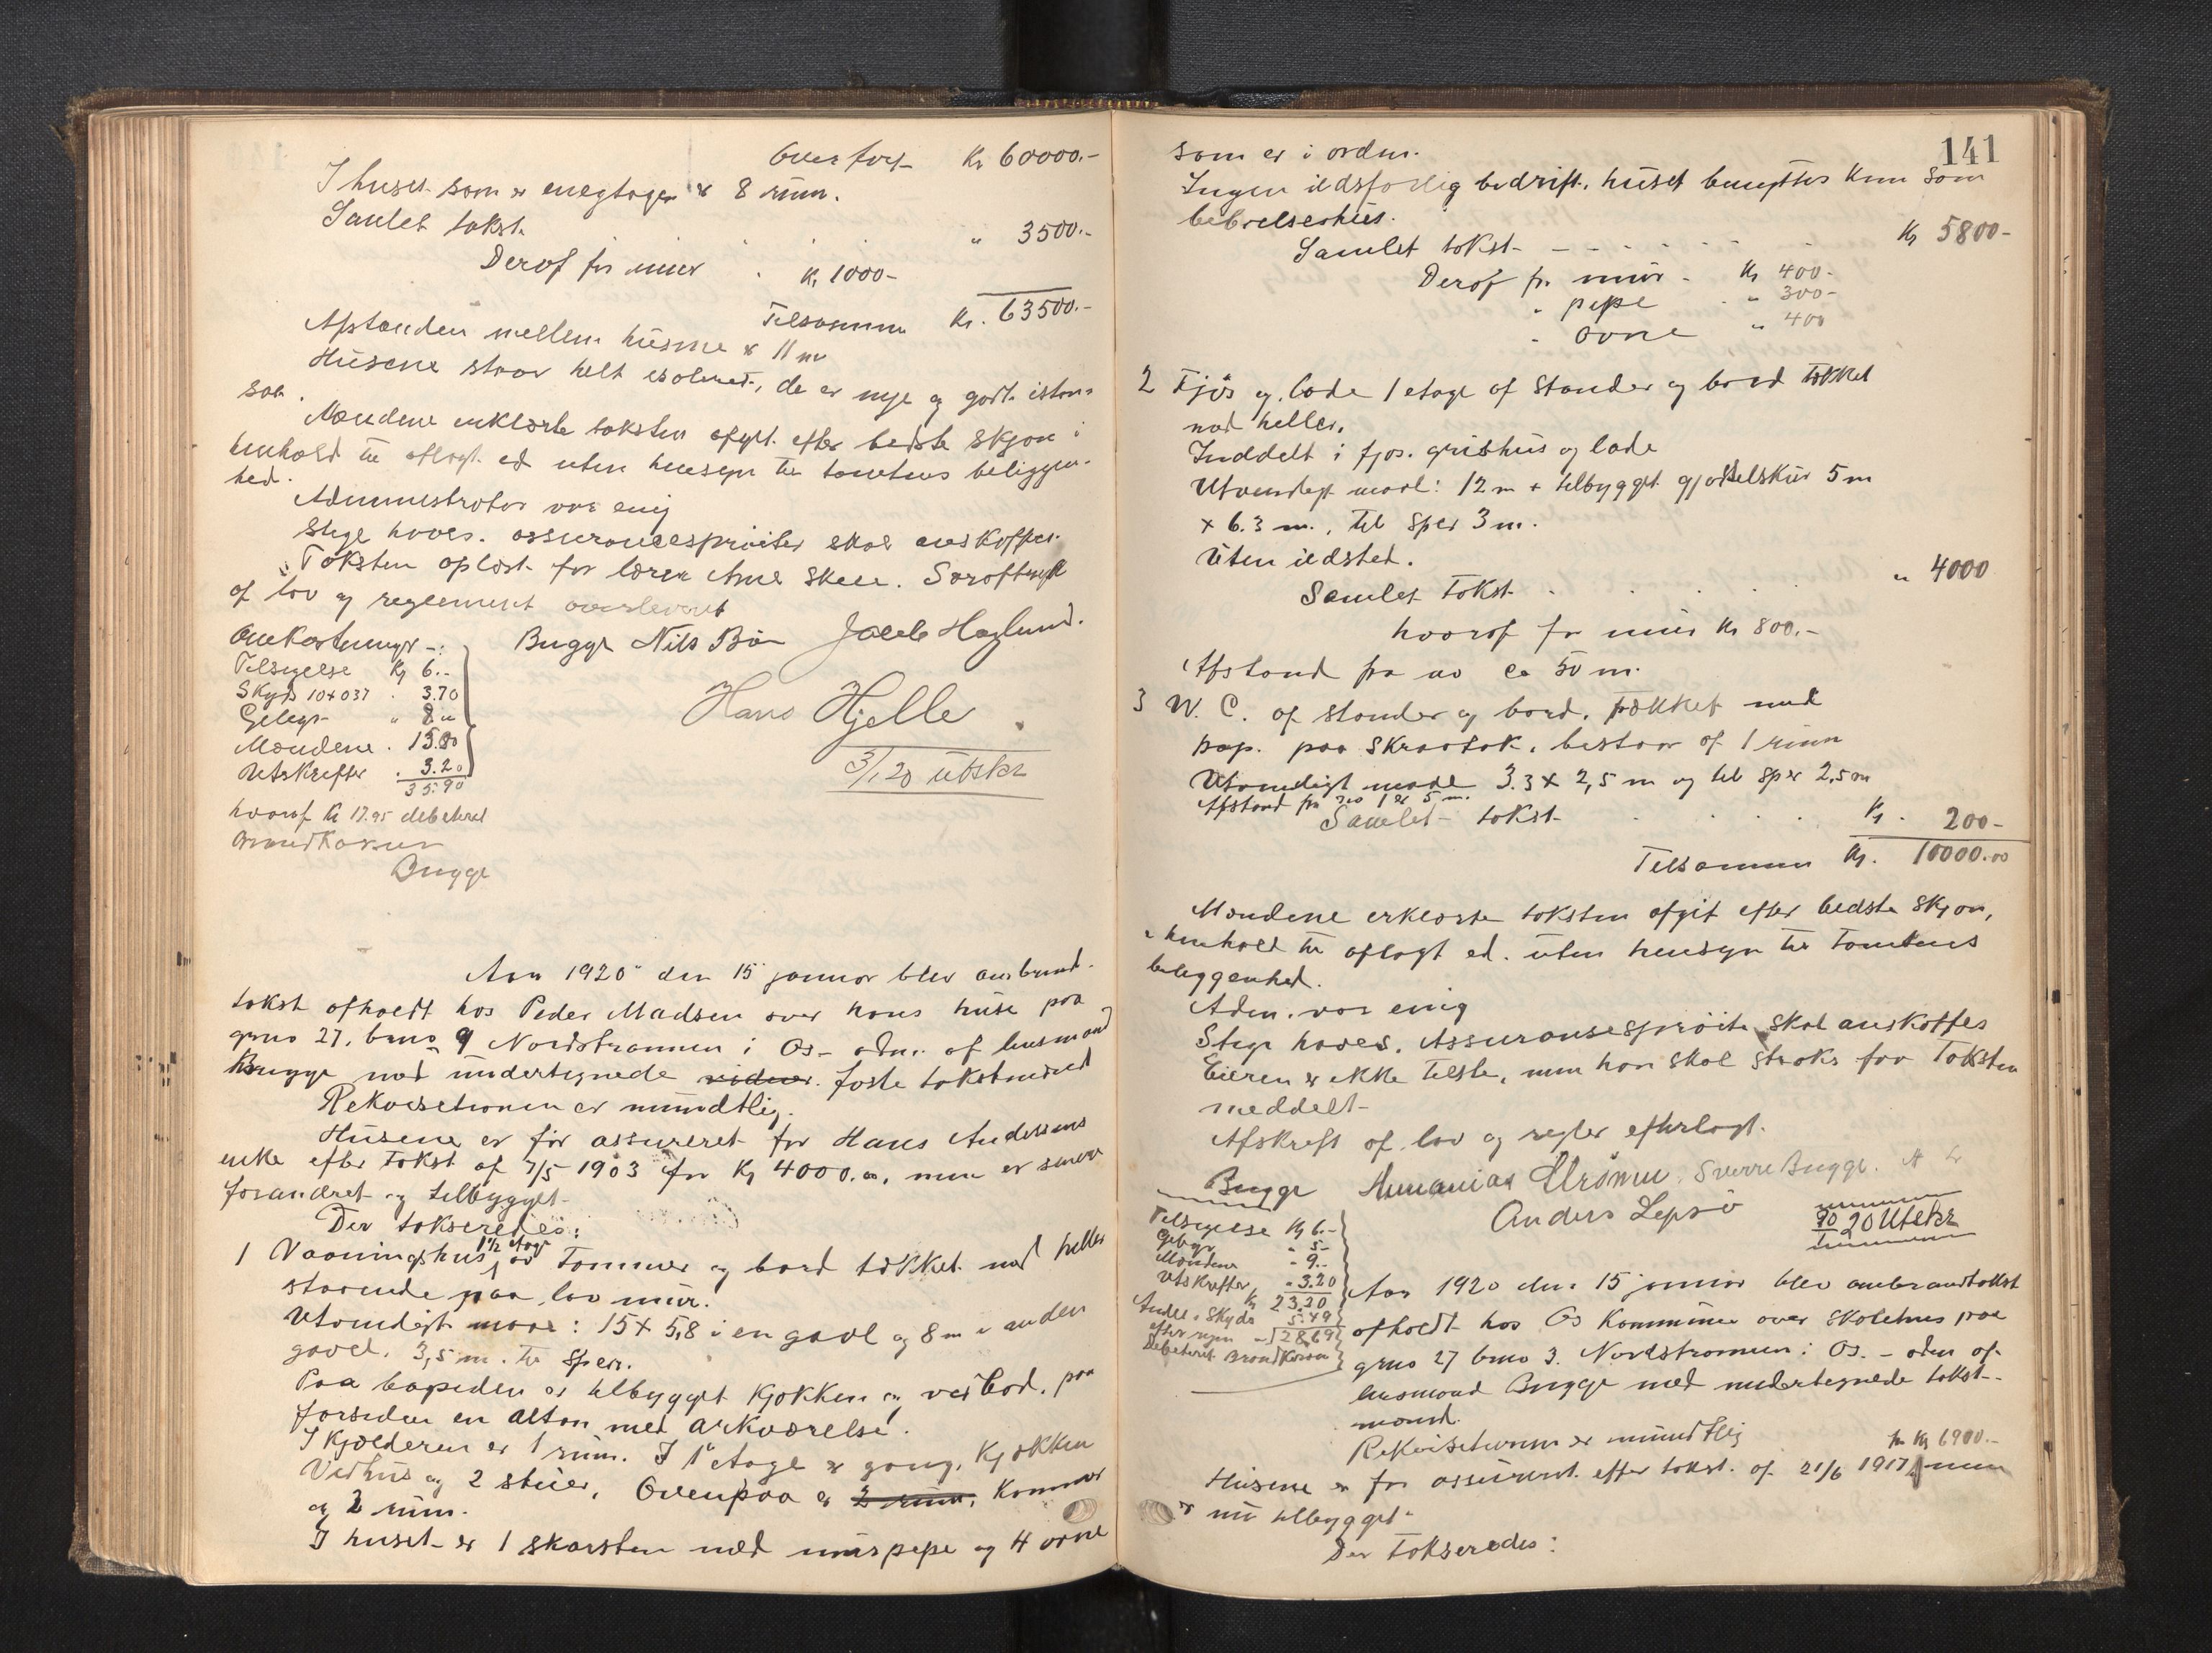 Overført Kr 60000.-
I huset som er enegtages er 8 rum.
Samlet takst " 3500.-
Deraf for mur Kr 1000-
Tilsammen Kr. 63500.-
Afstanden mellem husene er 11 m
Husene staar helt isoleret, de er nye og godt istan-
saa.
Mændene erklærte taksten afgit efter bedste skjøn i
henhold til aflagt ed uten hensyn til tomtens beliggen-
hed.
Administrator var enig
Stige haves. assurancesprøiter skal anskaffes.
Taksten oplæst for lærer Arne Skeie. Særaftryk
af lov og reglement overleveret
Omkostninger:
Bugge Nils Bø Jacob Haglund.
Tilsigelse Kr 6.-
Skyds 10 x 037 . 3.70
Gebyr " 8 "
Mændene . 15.80
Utskrifter . 3.20
35.90
Hans Hjelle
3/1 20 utskr
hvoraf Kr 17.95 debiteret
Brandkassen
Bugge
Aar 1920 den 15 januar blev ombrand-
takst afholdt hos Peder Madsen over hans huse paa
grno 27, brno 9 Nordstrømmen i Os - adm. af lensmand
Bugge med undertegnede videre. faste takstmænd
Rekvisitionen er mundtlig.
Husene er før assureret for Hans Andersens
enke efter takst af 7/5 1903 for Kr 4000.00, men er senere
forandret og tilbygget
Der takseredes:
1 Vaaningshus, 1 1/2 etage av tømmer og bord tækket med heller
staaende paa lav mur.
Utvendigt maal: 15 x 5,8 i en gavl og 8 m i anden
gavel. 3,5 m. til sper.
Paa bagsiden er tilbygget kjøkken og vedbod, paa
forsiden en altan med arkværelse.
I kjælderen er 1 rum. I 1ste etage er gang, kjøkken
Vedhus og 2 stuer, Ovenpaa er 2 rum, kammer
og 2 rum.
I huset er 1 skorsten med murspipe og 4 ovne
141
som er i orden.
Ingen ildsfarlig bedrift, huset benyttes kun som
bebœlseshus.
Samlet takst - - - - - Kr 5800-
Deraf for mur - Kr 400-
" pipe . " 300-
" ovne " 400
2 Fjøs og lade 1 etage af stander og bord tækket
med heller.
Inddelt i fjøs. grishus og lade
Utvendigt maal: 12 m + tilbygget gjødselskur 5 m
x 6.3 m., til sper 3 m.
Uten ildsted.
Samlet takst " 4000
hvoraf for mur Kr 800.-
Afstand fra no ca 50 m.
3 W. C. af stander og bord, tækket med
pap. paa skraatak, bestaar af 1 rum
Utvendigt maal 3.3 x 2,5 m og til sper 2,5 m
Afstand fra no 1 er 5 m.
Samlet takst Kr. 200-
Tilsammen Kr. 10000.00
Mændene erklærte taksten afgit efter bedste skjøn,
i henhold til aflagt ed. uten hensyn til tomtens
beliggenhed.
Adm. var enig
Stige haves. Assuransesprøite skal anskaffes
Eieren er ikke tilste, men han skal straks faa taksten
meddelt
Afskrift af lov og regler efterlagt.
Bugge Annanias Strømm Sverre Bugge.
Anders Lepsø
20 Utskr
Tilsigelse Kr 6.-
Gebyr " 5-
Mændene " 9.-
Utskrifter " 3.20
Kr 23.20
Andel i Skyds 5.49
efter regn - 28.69
Debiteret Brandkassen
Aar 1920 den 15 januar blev ombrandtakst
afholdt hos Os Kommune over skolehus paa
grno 27 brno 3. Nordstrømmen i Os. - adm af
lensmand Bugge med undertegnede takst-
mænd.
Rekvisitionen er mundtlig
for Kr 6900.-
Husene er før assureret efter takst af 21/6 1917, men
er nu tilbygget
Der takseredes: